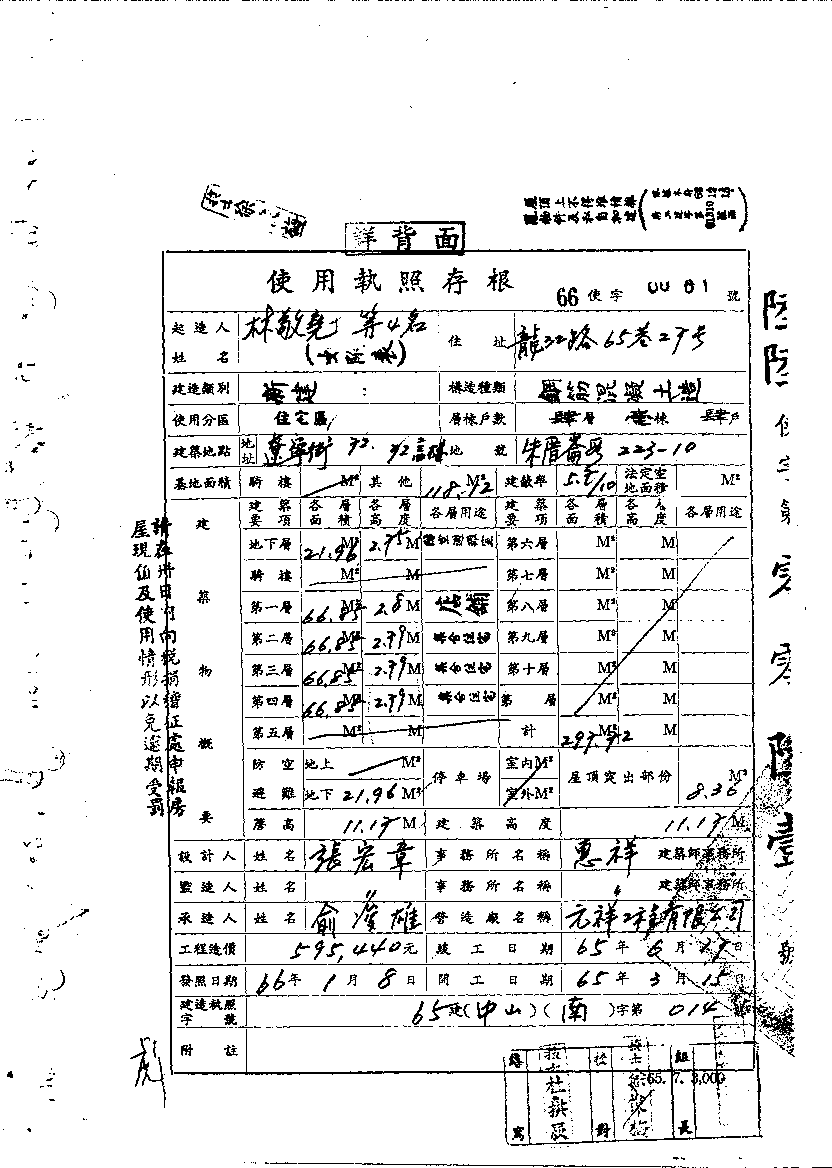 詳背面
使用執照存根
66使字 0081 號
起造人姓名 林敬堯 等4名 住址 龍江路65巷27号
建造類別 新建 構造種類 鋼筋混凝土造
使用分區 住宅區 層棟戶數 肆層 壹棟 肆戶
建築地點 地址 遼寧街 地號 朱厝崙段223-10
基地面積 騎樓 M² 其他 118.12 M² 建蔽率 /10 法定空地面積 M²
建築物概要
建築要項 各層面積 各層高度 各層用途 建築要項 各層面積 各層高度 各層用途
地下層 21.96 M² 2.75 M 第六層 M² M
騎樓 M² M 第七層 M² M
第一層 66.85 M² 2.8 M 店舖 第八層 M² M
第二層 66.85 M² 2.79 M 集合住宅 第九層 M² M
第三層 66.85 M² 2.79 M 集合住宅 第十層 M² M
第四層 66.85 M² 2.79 M 集合住宅 第 層 M² M
第五層 M² M 計 297.72 M² M
防空避難 地上 M² 停車場 室內 M² 屋頂突出部份 8.36 M²
地下 21.96 M² 室外 M²
簷高 11.17 M 建築高度 11.17 M
設計人 姓名 張宏章 事務所名稱 惠祥 建築師事務所
監造人 姓名 〃 事務所名稱 〃 建築師事務所
承造人 姓名 俞俊雄 營造廠名稱 元祥工程有限公司
工程造價 595,440元 竣工日期 65年6月29日
發照日期 66年1月8日 開工日期 65年3月15日
建造執照字號 65建(中山)(南)字第 014 號
附註
65.7.3,000
繕寫 校對 組長
請在卅日內向稅捐稽征處申報房
屋現值及使用情形以免逾期受罰